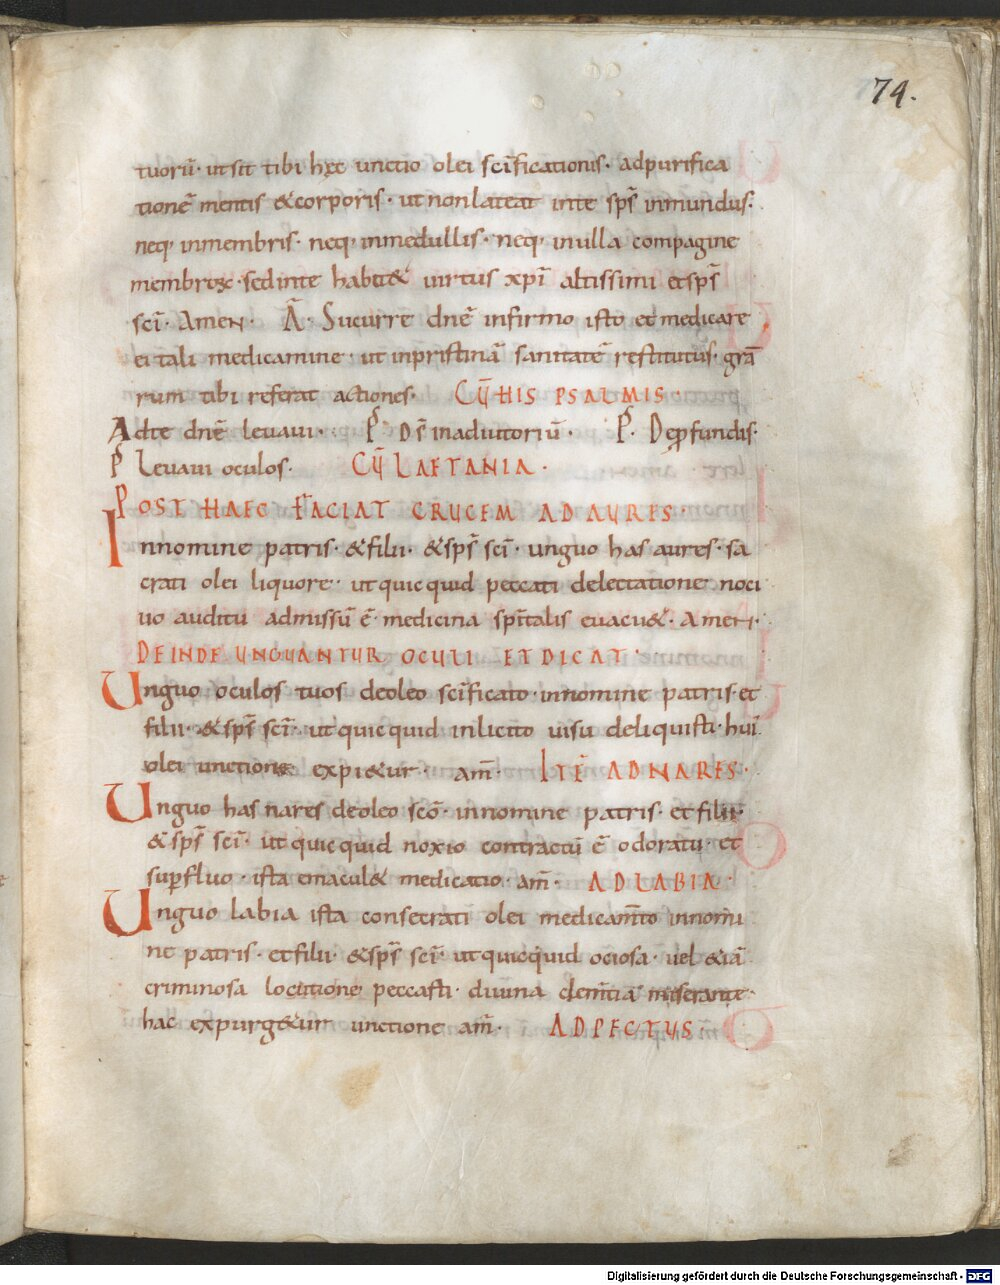 74.
tuorū· ut sit tibi hęc unctio olei sc̄ificationis· ad purifica
tionē mentis & corporis· ut non lateat in te sps̄ inmundus·
neq; in membris· neq; in medullis· neq; in ulla compagine
membroꝝ· sed in te habit& uirtus xp̄i altissimi et sps̄
sc̄i· Amen· Ā· Sucurre dn̄e infirmo isto et medicare
ei tali medicamine· ut in pristinā sanitatē restitutus· gr̄a
rum tibi referat actiones· CŪ HIS PSALMIS·
Ad te dn̄e leuaui· P̄· Ds̄ in adiutoriū· P̄· De ꝓfundis·
P̄ Leuaui oculos· CŪ LAETANIA·
POST HAEC FACIAT CRUCEM AD AURES·
In nomine patris· & filii· & sps̄ sc̄i· unguo has aures· sa
crati olei liquore· ut quicquid peccati delectatione noci
uo auditu admissū ē· medicina sp̄italis euacu&· Amen·
DEINDE UNGUANTUR OCULI ET DICAT·
Unguo oculos tuos de oleo sc̄ificato· in nomine patris· et
filii· & sps̄ sc̄i· ut quicquid inlicito uisu deliquisti· hui'
olei unctione expi&ur· am̄· ITĒ AD NARES·
Unguo has nares de oleo sc̄o· in nomine patris· et filii·
& sps̄ sc̄i· ut quicquid noxio contractū ē odoratu· et
suꝑfluo· ista emacul& medicatio· am̄· AD LABIA·
Unguo labia ista consecrati olei medicam̄to in nomi
ne patris· et filii· & sps̄ sc̄i· ut quicquid ociosa· uel &iā
criminosa locutione peccasti· diuina clem̄tia miserante·
hac expurg&ur unctione am̄· AD PECTUS·
Digitalisierung gefördert durch die Deutsche Forschungsgemeinschaft - DFG